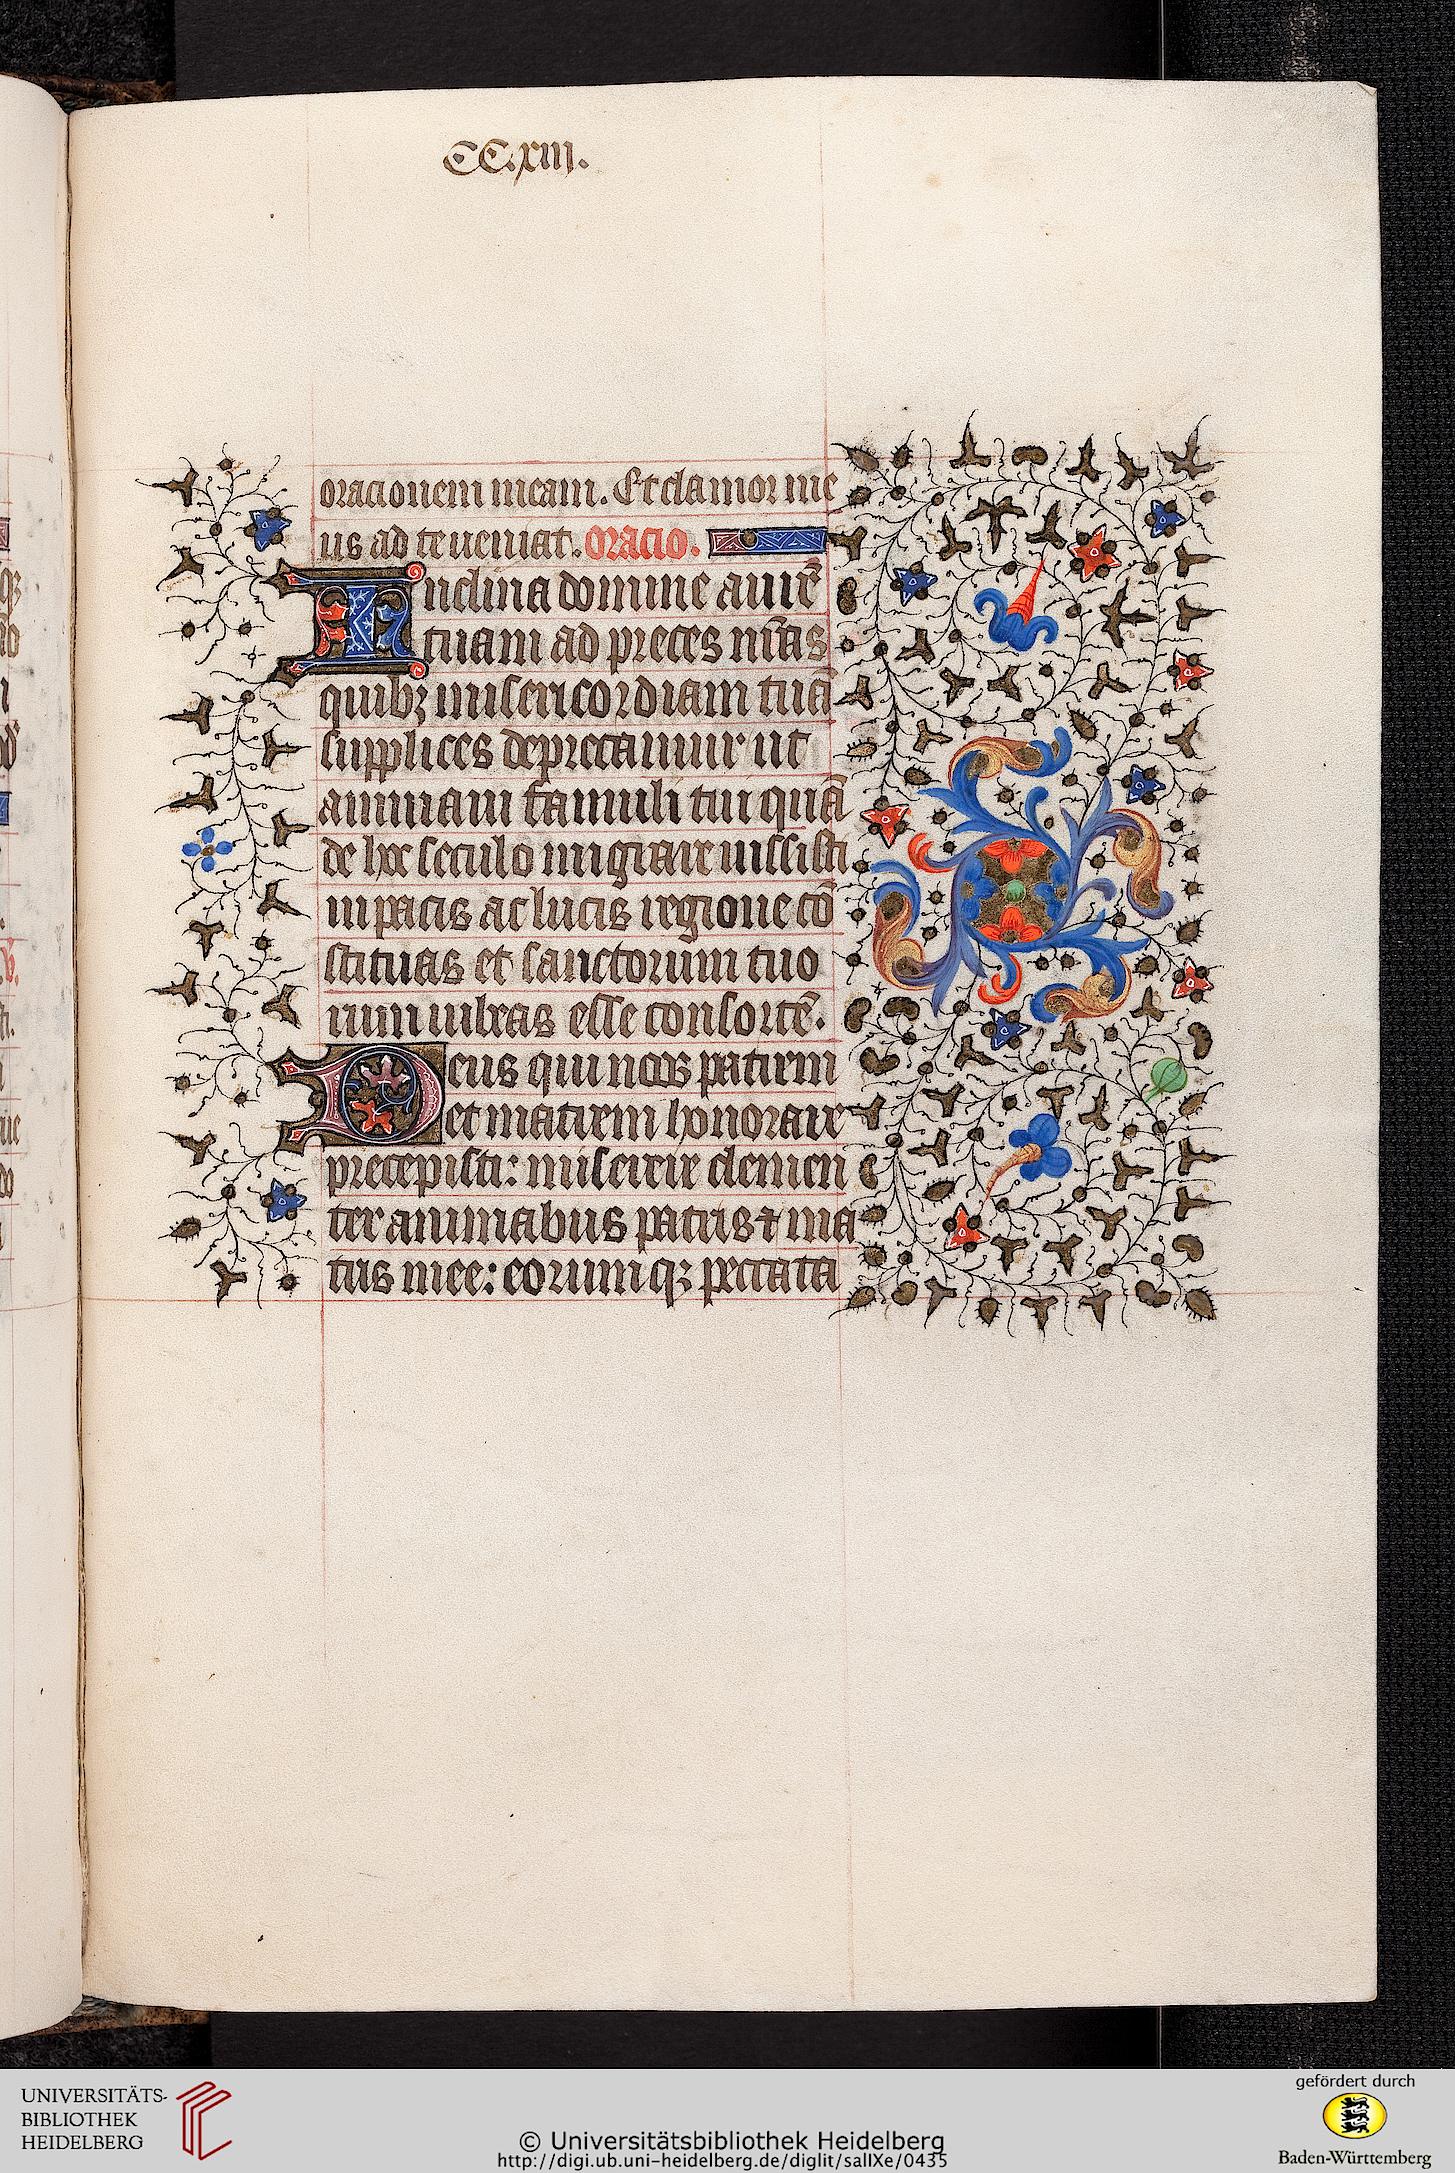 CC.xiij.
oracionem meam. Et clamor me
us ad te ueniat. Oracio.
Inclina domine aurē
tuam ad preces nr̄as
quibꝫ misericordiam tuā
supplices deprecamur ut
animam famuli tui quā
de hoc seculo migrare iussisti
in pacis ac lucis regione cō
stituas et sanctorum tuo
rum iubeas esse consortē.
Deus qui nos patrem
et matrem honorare
precepisti: miserere clemen
ter animabus patris ⁊ ma
tris mee: eorumqꝫ peccata
UNIVERSITÄTS-
BIBLIOTHEK
HEIDELBERG
© Universitätsbibliothek Heidelberg
http://digi.ub.uni-heidelberg.de/diglit/salIXe/0435
gefördert durch
Baden-Württemberg